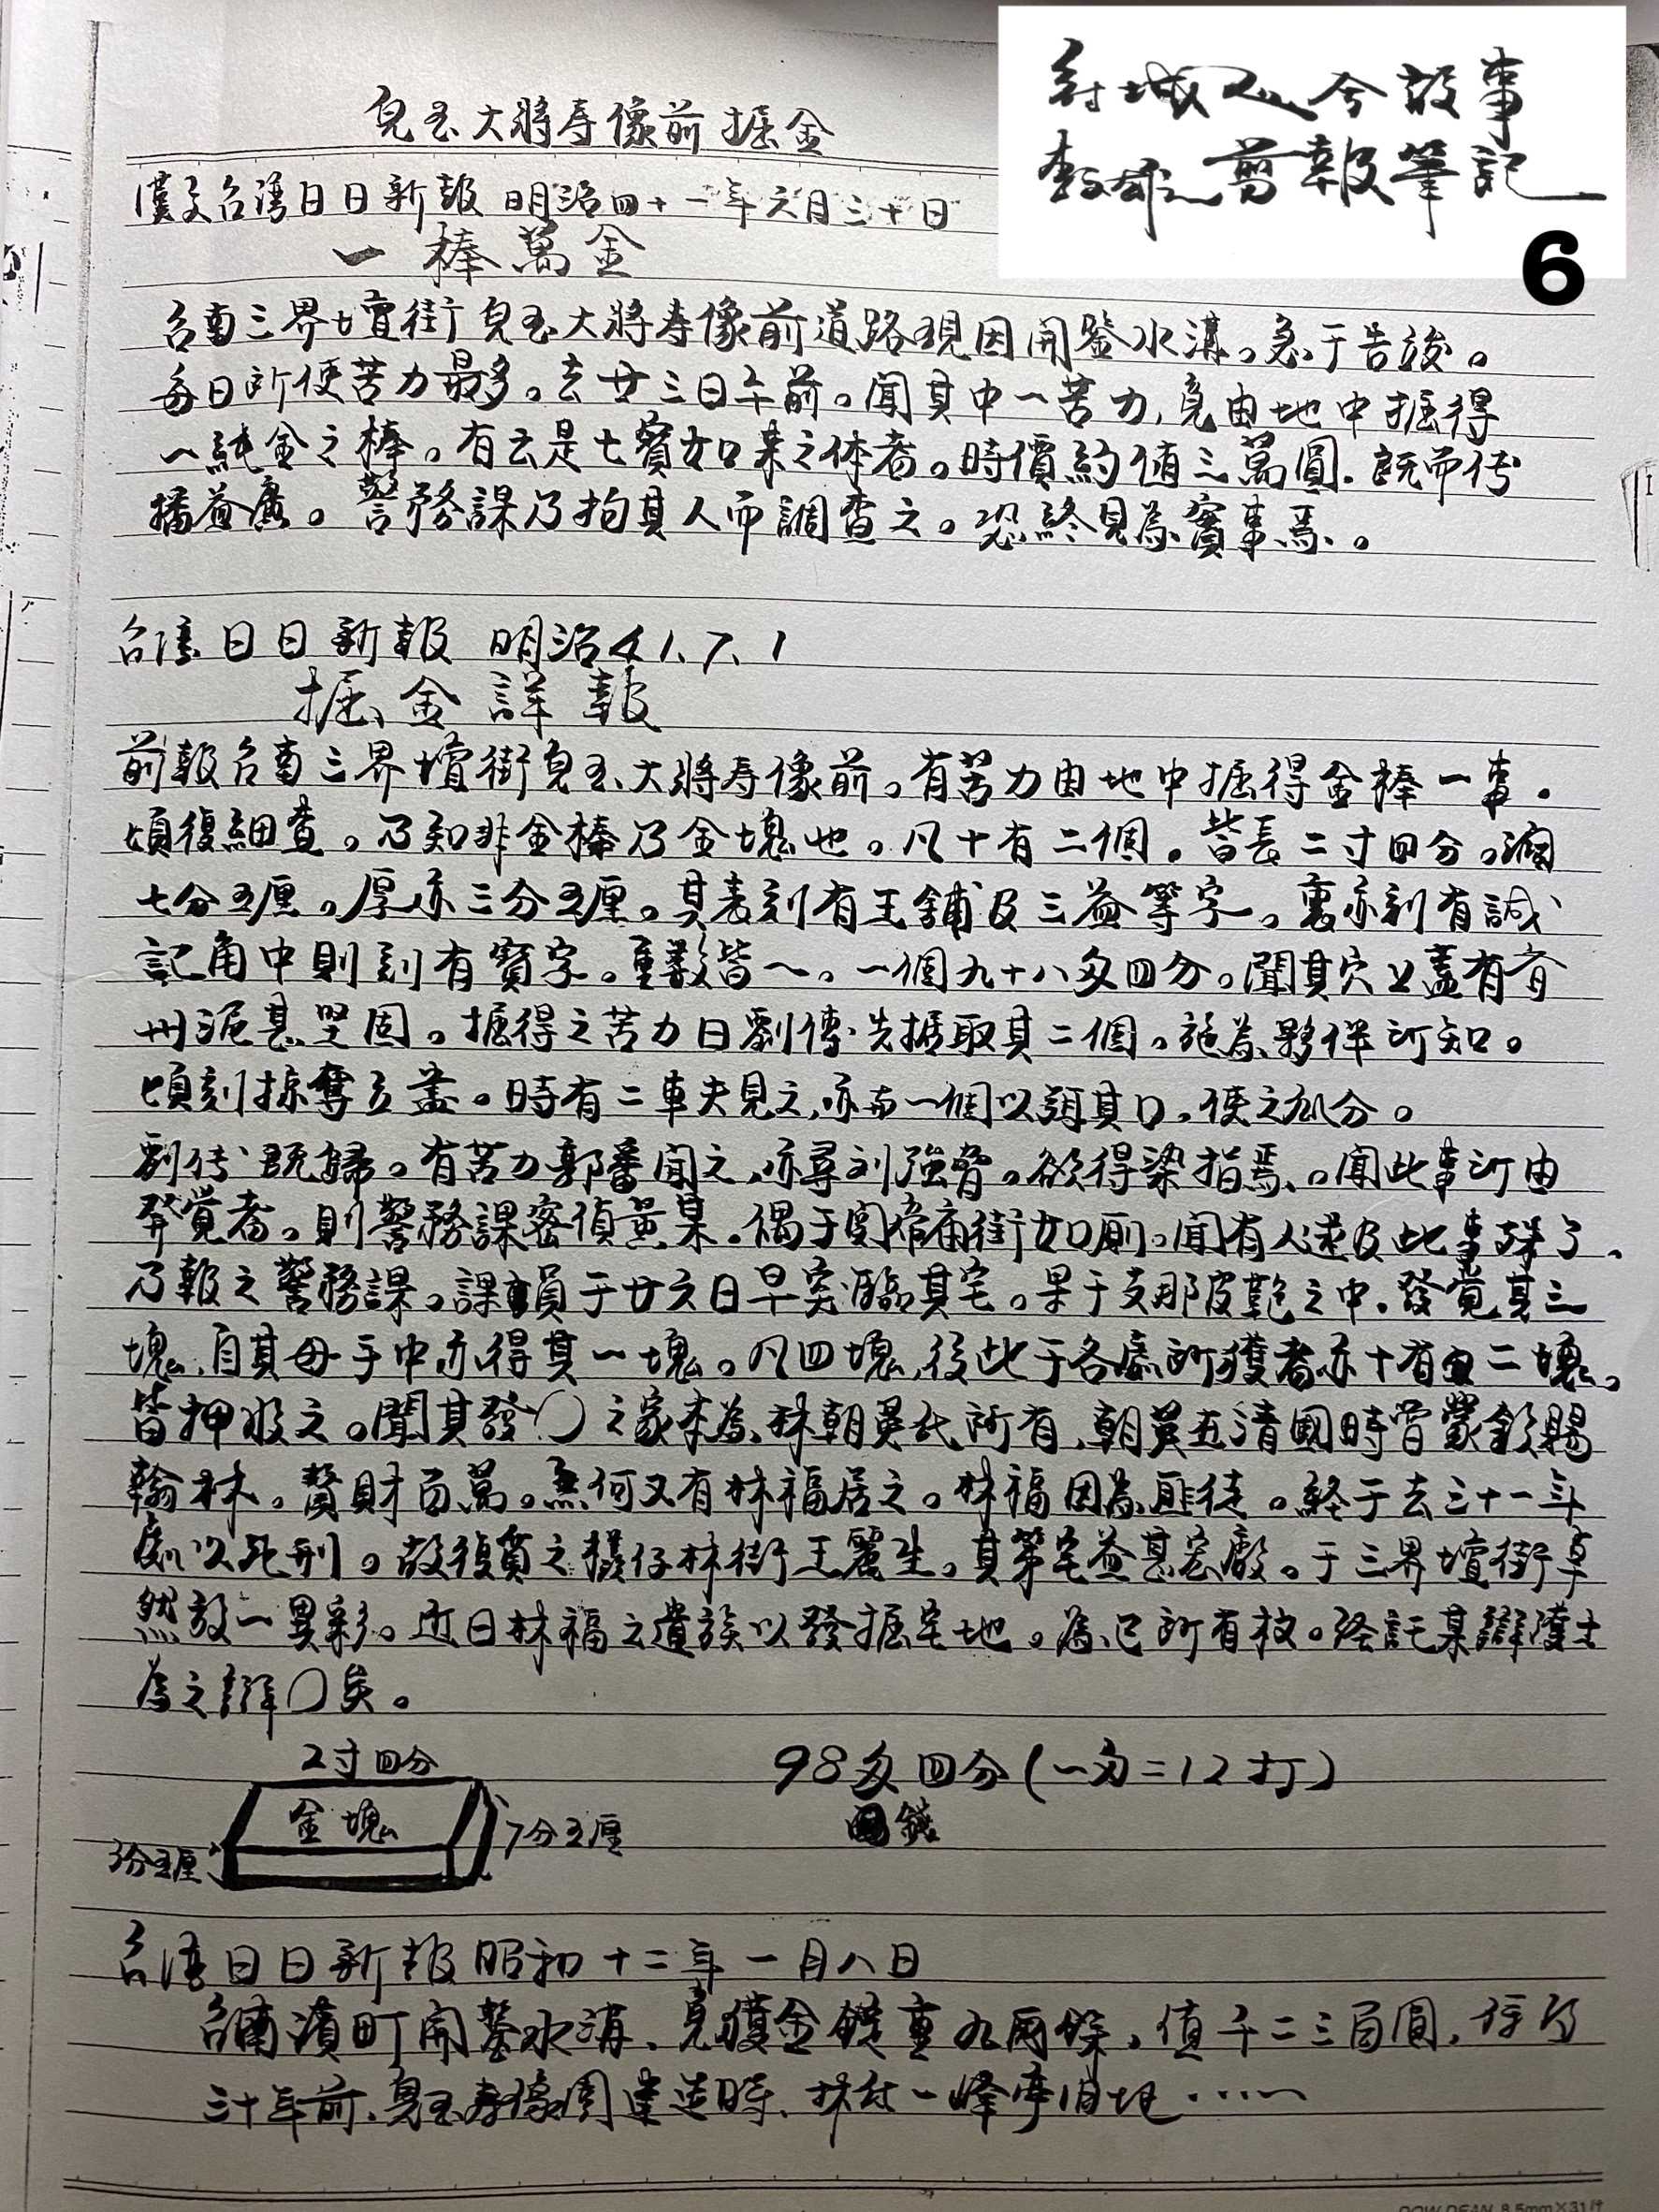 兒玉大將寿像前掘金
府城古今故事
剪報筆記
6
漢文台湾日日新報 明治四十一年六月三十日
一棒萬金
台南三界壇街兒玉大將寿像前道路現因開鑿水溝。急于告竣。
每日所使苦力最多。去廿三日午前。聞其中一苦力,竟由地中掘得
一純金之棒。有云是七寶如来之体者。時價約值三萬圓.既而传
播益廣。警務課乃拘其人而調查之。恐終見為實事焉。
台湾日日新報 明治41、7、1
掘金詳報
前報台南三界壇街兒玉大將寿像前。有苦力由地中掘得金棒一事。
頃復細查。乃知非金棒乃金塊也。凡十有二個。皆長二寸四分。濶
七分五厘。厚亦三分五厘。其表刻有王舖及三益等字。裏亦刻有誠
記角中則刻有寶字。重數皆一。一個九十八匁四分。聞其穴上蓋有
泥甚堅固。掘得之苦力曰劉傳先掘取其二個。旋為夥伴所知。
頃刻掠奪立盡。時有二車夫見之,亦与一個以弭其口,使之瓜分。
劉传既歸。有苦力郭番聞之,亦尋刘強脅。欲得染指焉。聞此事所由
發覚者。則警務課密偵黃某。偶于関帝廟街如厠。聞有人述及此事殊了、
乃報之警務課。課員于廿六日早突臨其宅。果于支那皮鞄之中,發覚其三
塊,自其母手中亦得其一塊。凡四塊,後此于各處所獲者亦十有二塊。
皆押收之。聞其發〇之家本為林朝英氏所有,朝英在清國時曾蒙欽賜
翰林。貲財百萬。無何又有林福居之。林福因為匪徒。終于去三十一年
處以死刑。故後質之檨仔林街王麗生。其第宅益甚宏廠。于三界壇街卓
然放一異彩。近日林福之遺族以發掘宅地。為己所有故。経託某辯護士
為之辯〇矣。
2寸四分
98匁四分(一匁=12打)
金塊
7分五厘
錢
3分五厘
台湾日日新報昭和十二年一月八日
台南濱町開鑿水溝、竟獲金錢重九兩餘,值千二三百圓,
三十年前,兒玉寿像周建造時、林村一峰亭旧址……